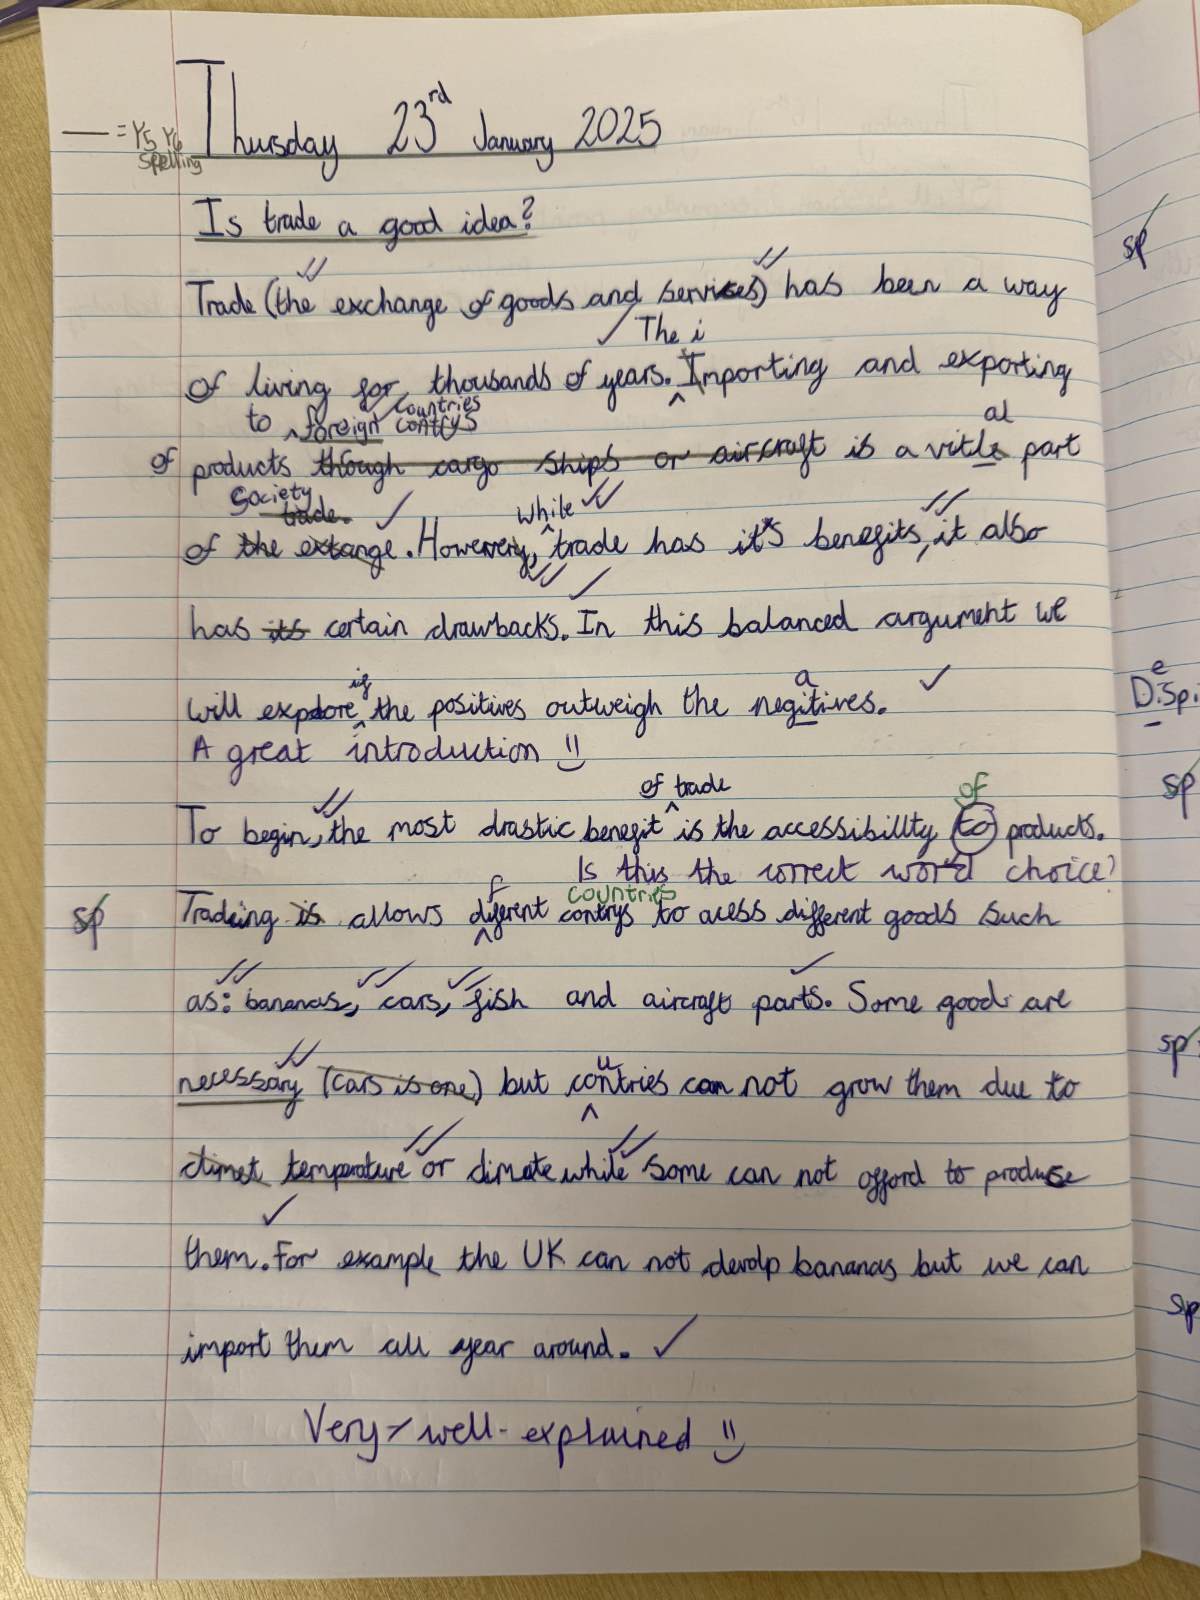 —— = Y5 Y6
spelling
Thursday 23rd January 2025
Is trade a good idea?
Trade (the exchange of goods and services) has been a way
The i
of living for thousands of years. Importing and exporting
to foreign countries contrys
al
of products though cargo ships or aircraft is a vitle part
Society trade.
while
of the extange. However, trade has it's benefits, it also
has its certain drawbacks. In this balanced argument we
if
a
will explore the positives outweigh the negitives.
A great introduction
of trade
of
To begin, the most drastic benefit is the accessibillty to products.
Is this the correct word choice?
f
countries
sp Tradeing is allows diferent contrys to acess different goods such
as: bananas, cars, fish and aircraft parts. Some goods are
u
necessary (cars is one) but contries can not grow them due to
climet temperature or climate while some can not afford to produse
them. For example the UK can not devolp bananas but we can
import them all year around.
Very well-explained
sp
e
Dispi
sp
sp
sp